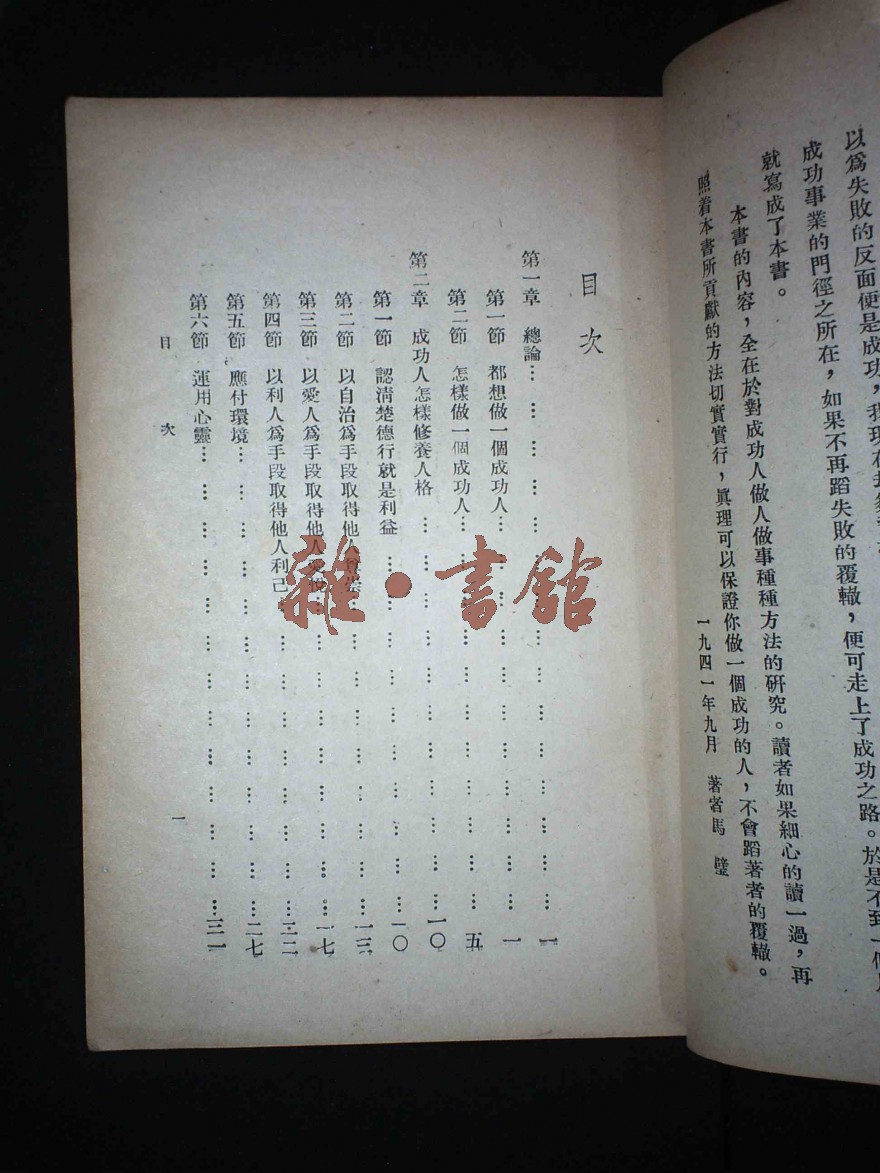 以爲失敗的反面便是成功，我現在
成功事業的門徑之所在，如果不再蹈失敗的覆轍，便可走上了成功之路。於是不到一個月
就寫成了本書。
本書的內容，全在於對成功人做人做事種種方法的研究。讀者如果細心的讀一過，再
照着本書所貢獻的方法切實實行，眞理可以保證你做一個成功的人，不會蹈著者的覆轍。
一九四一年九月　著者馬　璧
目次
第一章　總論… … … … … … … … … … … … …一
第一節　都想做一個成功人… … … … … … … … …一
第二節　怎樣做一個成功人… … … … … … … … …五
第二章　成功人怎樣修養人格… … … … … … … …一〇
第一節　認清楚德行就是利益… … … … … … … …一〇
第二節　以自治爲手段取得他人… … … … … …一三
第三節　以愛人爲手段取得他人… … … … … …一七
第四節　以利人爲手段取得他人利己… … … … … …二二
第五節　應付環境… … … … … … … … … … …二七
第六節　運用心靈… … … … … … … … … … …三一
目　次
一
雜·書館